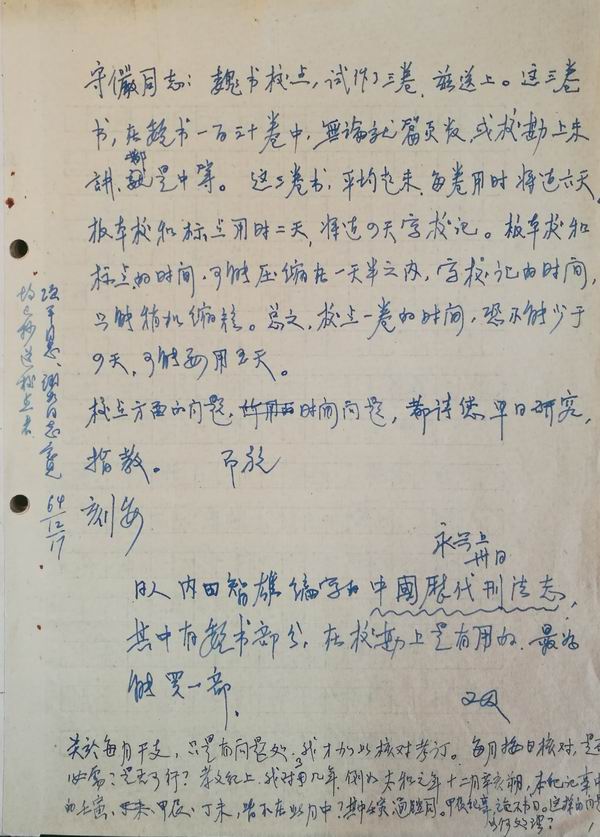 守儼同志：魏书校点，试作了三卷，兹送上。这三卷
书，在魏书一百三十卷中，無論就篇页说，或校勘上来
讲，都是中等。这三卷书，平均起来，每卷用时将近六天，
板本校和标点用时二天，将近四天字校记。板本校和
标点的时间，可能压缩在一天半之内，字校记的时间，
只能稍加缩短。总之，校点一卷的时间，恐不能少于
四天，可能要用五天。
校点方面的问题，时间问题，都请您早日研究，
指教。 即致
刻安
永 上
卅日
日人内田智雄编字的中國歷代刑法志，
其中有魏书部分，在校勘上是有用的，最好
能买一部。
又及
关於每月干支，只是有问题处，我才加以核对考订。每月按日核对，是
必需？是否可行？孝文纪上，我对了几年，例如太和元年十二月辛亥朔，本纪记事中
的 丁未、甲辰、丁未，皆不在此月中？
64/12/17
均已抄送校点者